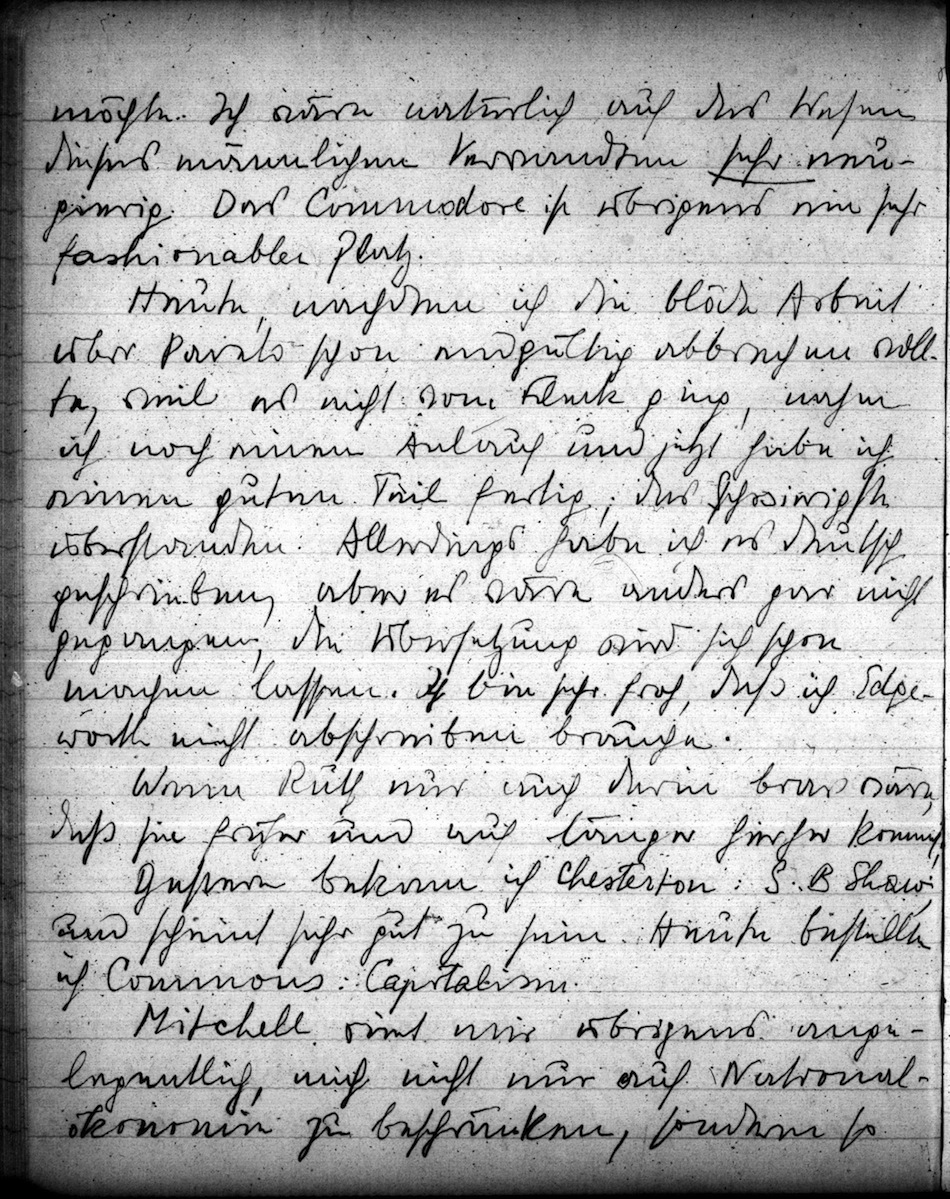 möchte. Ich wäre natürlich auf das Wesen
dieses männlichen Verwandten sehr neu-
gierig. Das Commodore ist übrigens ein sehr
fashionabler Platz.
Heute, nachdem ich die blöde Arbeit
über Pareto schon endgültig abbrechen woll-
te, weil es nicht vom Fleck ging, nahm
ich noch einen Anlauf und jetzt habe ich
einen guten Teil fertig; das Schwierigste
überstanden. Allerdings habe ich es deutsch
geschrieben, aber es wäre anders gar nicht
gegangen, die Übersetzung wird sich schon
machen lassen. Ich bin sehr froh, daß ich Edge-
worth nicht abschreiben brauche.
Wenn Ruth nur auch darin brav wäre,
daß sie früher und auf länger hierher kommt.
Gestern bekam ich Chesterton: G. B Shaw
und scheint sehr gut zu sein. Heute bestellte
ich Commons: Capitalism.
Mitchell riet mir übrigens ange-
legentlich, mich nicht nur auf National-
ökonomie zu beschränken, sondern so